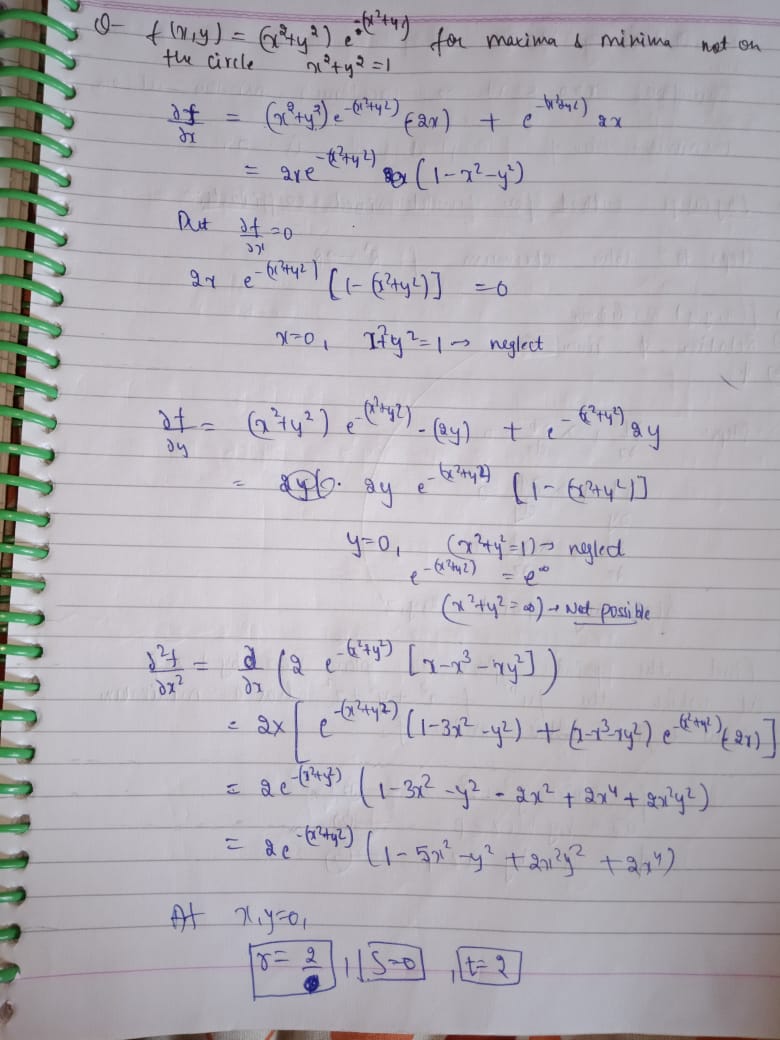 Q- f(x,y) = (x²+y²) e^-(x²+y²) for maxima & minima not on
the circle x²+y²=1
∂f/∂x = (x²+y²) e^-(x²+y²) (-2x) + e^-(x²+y²) 2x
= 2xe^-(x²+y²) (1-x²-y²)
Put ∂f/∂x =0
2x e^-(x²+y²) [1-(x²+y²)] =0
x=0, x²+y²=1 → neglect
∂f/∂y = (x²+y²) e^-(x²+y²) -(2y) + e^-(x²+y²) 2y
= 2y e^-(x²+y²) [1-(x²+y²)]
y=0, (x²+y²=1) → negled
e^-(x²+y²) = e^∞
(x²+y²=∞) → Not possible
∂²f/∂x² = ∂/∂x (2 e^-(x²+y²) [x-x³-xy²])
= 2x[e^-(x²+y²) (1-3x²-y²) + (x-x³-xy²) e^-(x²+y²) (-2x)]
= 2e^-(x²+y²) (1-3x²-y²-2x²+2x⁴+2x²y²)
= 2e^-(x²+y²) (1-5x²-y²+2x²y²+2x⁴)
At x,y=0,
r=2, s=0, t=2